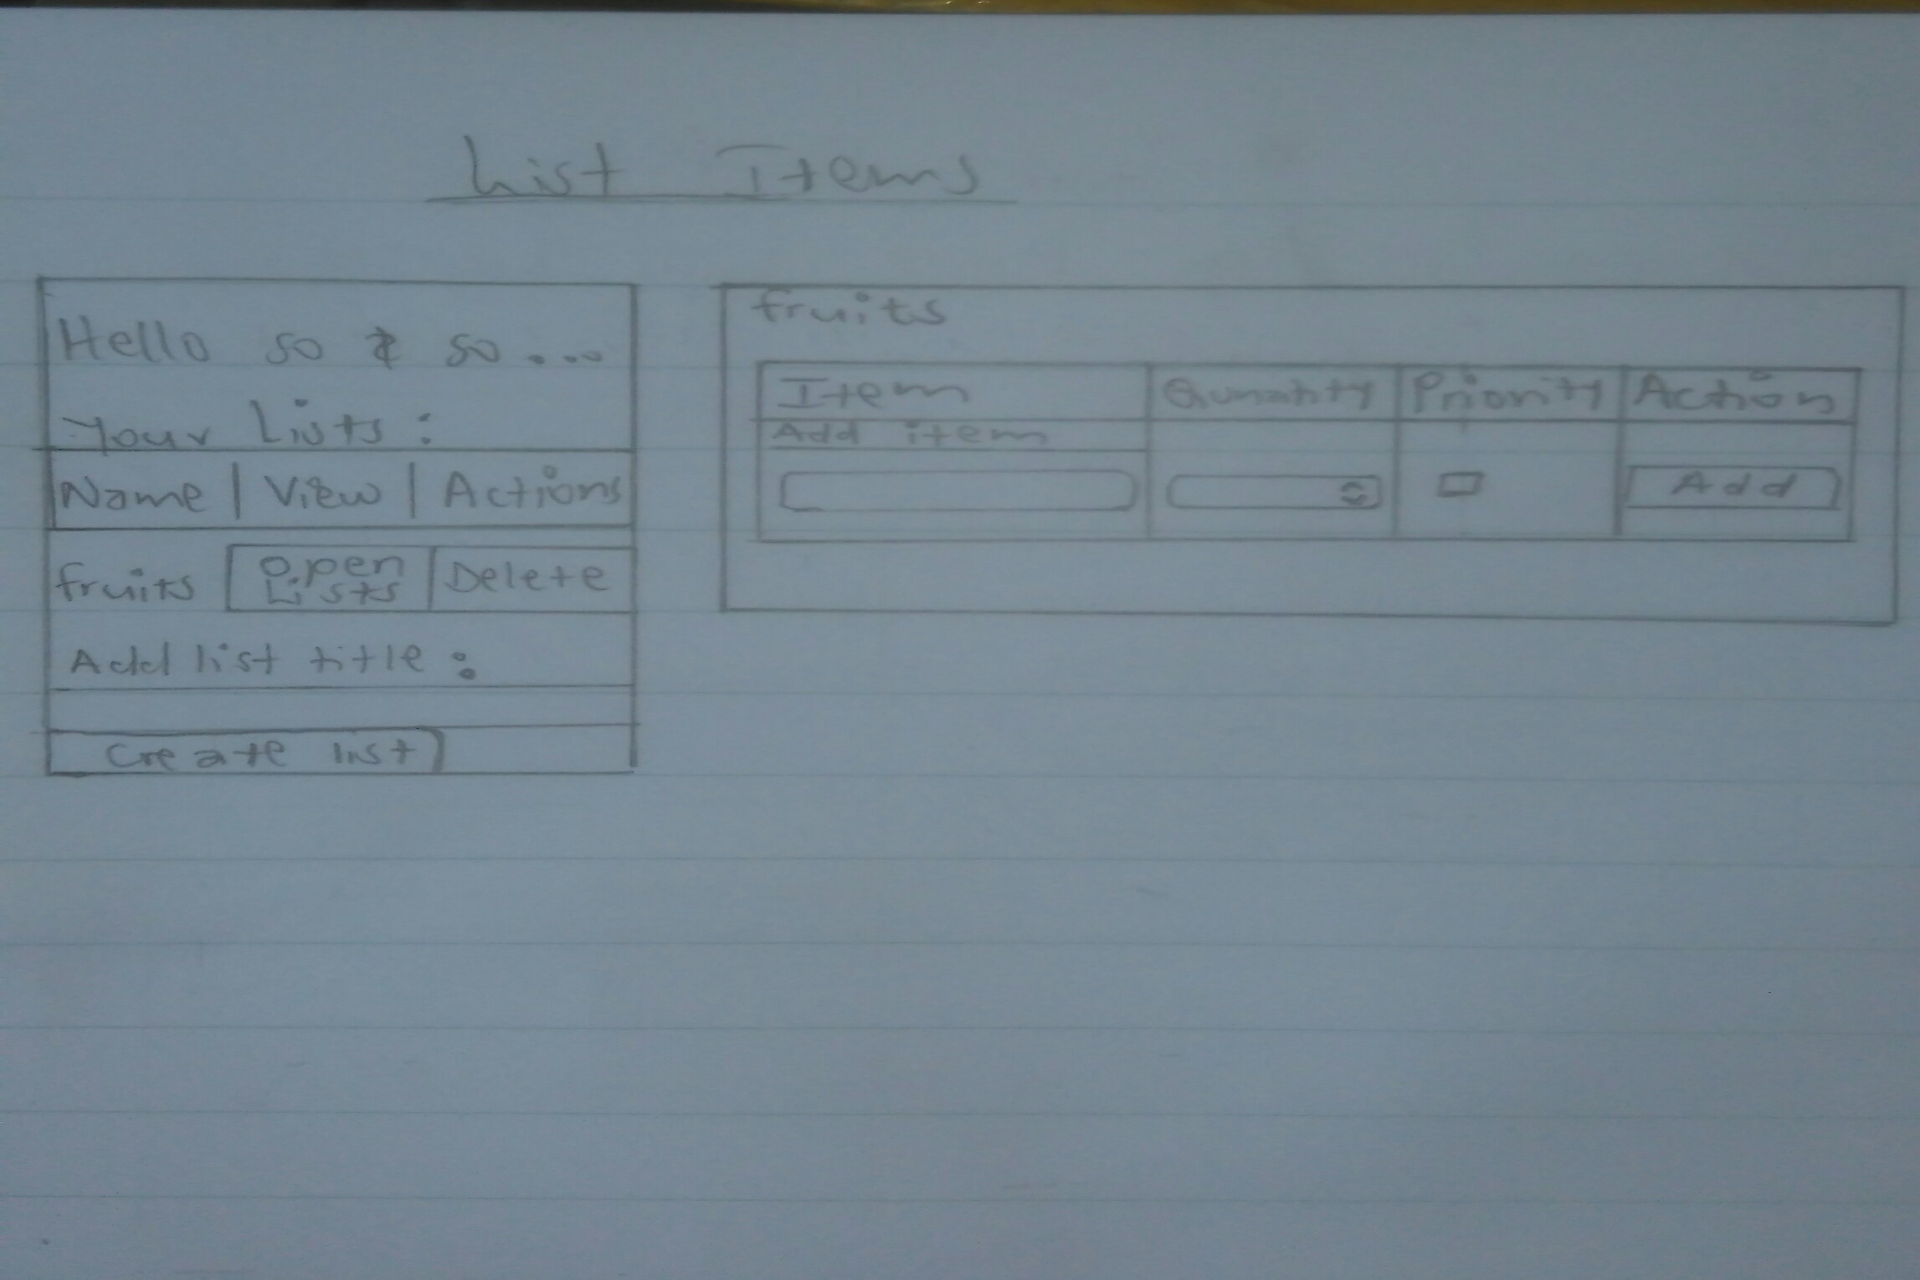 List Items
Hello so & so...
Your Lists:
Name | View | Actions
fruits Open Lists Delete
Add list title:
Create list
fruits
Item Quantity Priority Action
Add item
Add